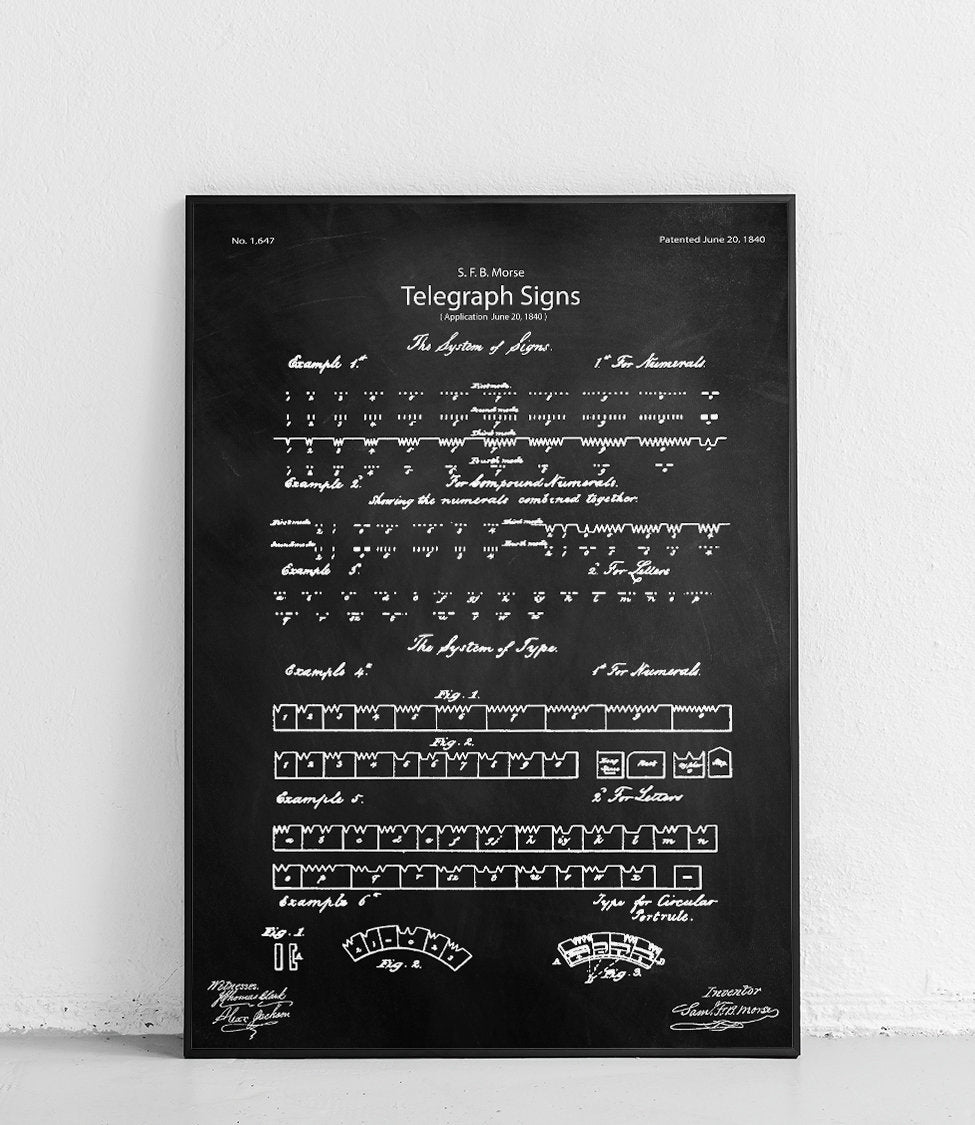 No. 1,647
Patented June 20, 1840
S. F. B. Morse
Telegraph Signs
( Application June 20, 1840 )
The System of Signs.
Example 1st
1st For Numerals.
First mode.
Second mode
Third mode
Fourth mode
Example 2d.
For Compound Numerals.
Showing the numerals combined together.
First mode
Third mode
Second mode
Fourth mode
Example 3.
2d For Letters
The System of Type.
Example 4th
1st For Numerals.
Fig. 1.
1 2 3 4 5 6 7 8 9 0
Fig. 2.
1 2 3 4 5 6 7 8 9 0
Example 5.
2d For Letters
a b c d e f gj h iy k l m n
o p q r sz t u v w x
Example 6th
Type for Circular
Portrule.
Fig. 1.
A
Fig. 2.
A
Fig. 3.
Witnesses.
Thomas Clark
Alex Jackson
Inventor
Sam. F. B. Morse